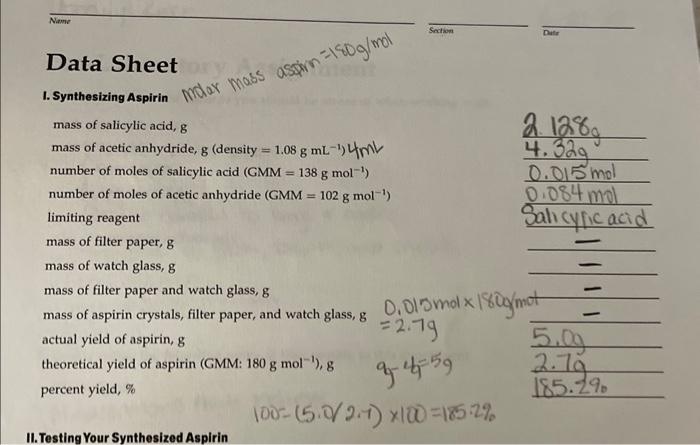 Name
Section
Date
Data Sheet
molar mass aspirin=180g/mol
I. Synthesizing Aspirin
mass of salicylic acid, g 2.128g
mass of acetic anhydride, g (density = 1.08 g mL⁻¹) 4mL 4.32g
number of moles of salicylic acid (GMM = 138 g mol⁻¹) 0.015mol
number of moles of acetic anhydride (GMM = 102 g mol⁻¹) 0.084 mol
limiting reagent Salicylic acid
mass of filter paper, g —
mass of watch glass, g —
mass of filter paper and watch glass, g —
mass of aspirin crystals, filter paper, and watch glass, g 0.015molx180g/mol —
=2.7g
actual yield of aspirin, g 5.0g
theoretical yield of aspirin (GMM: 180 g mol⁻¹), g 9-4=5g 2.7g
percent yield, % 185.2%
100-(5.0/2.7) x100=185.2%
II. Testing Your Synthesized Aspirin